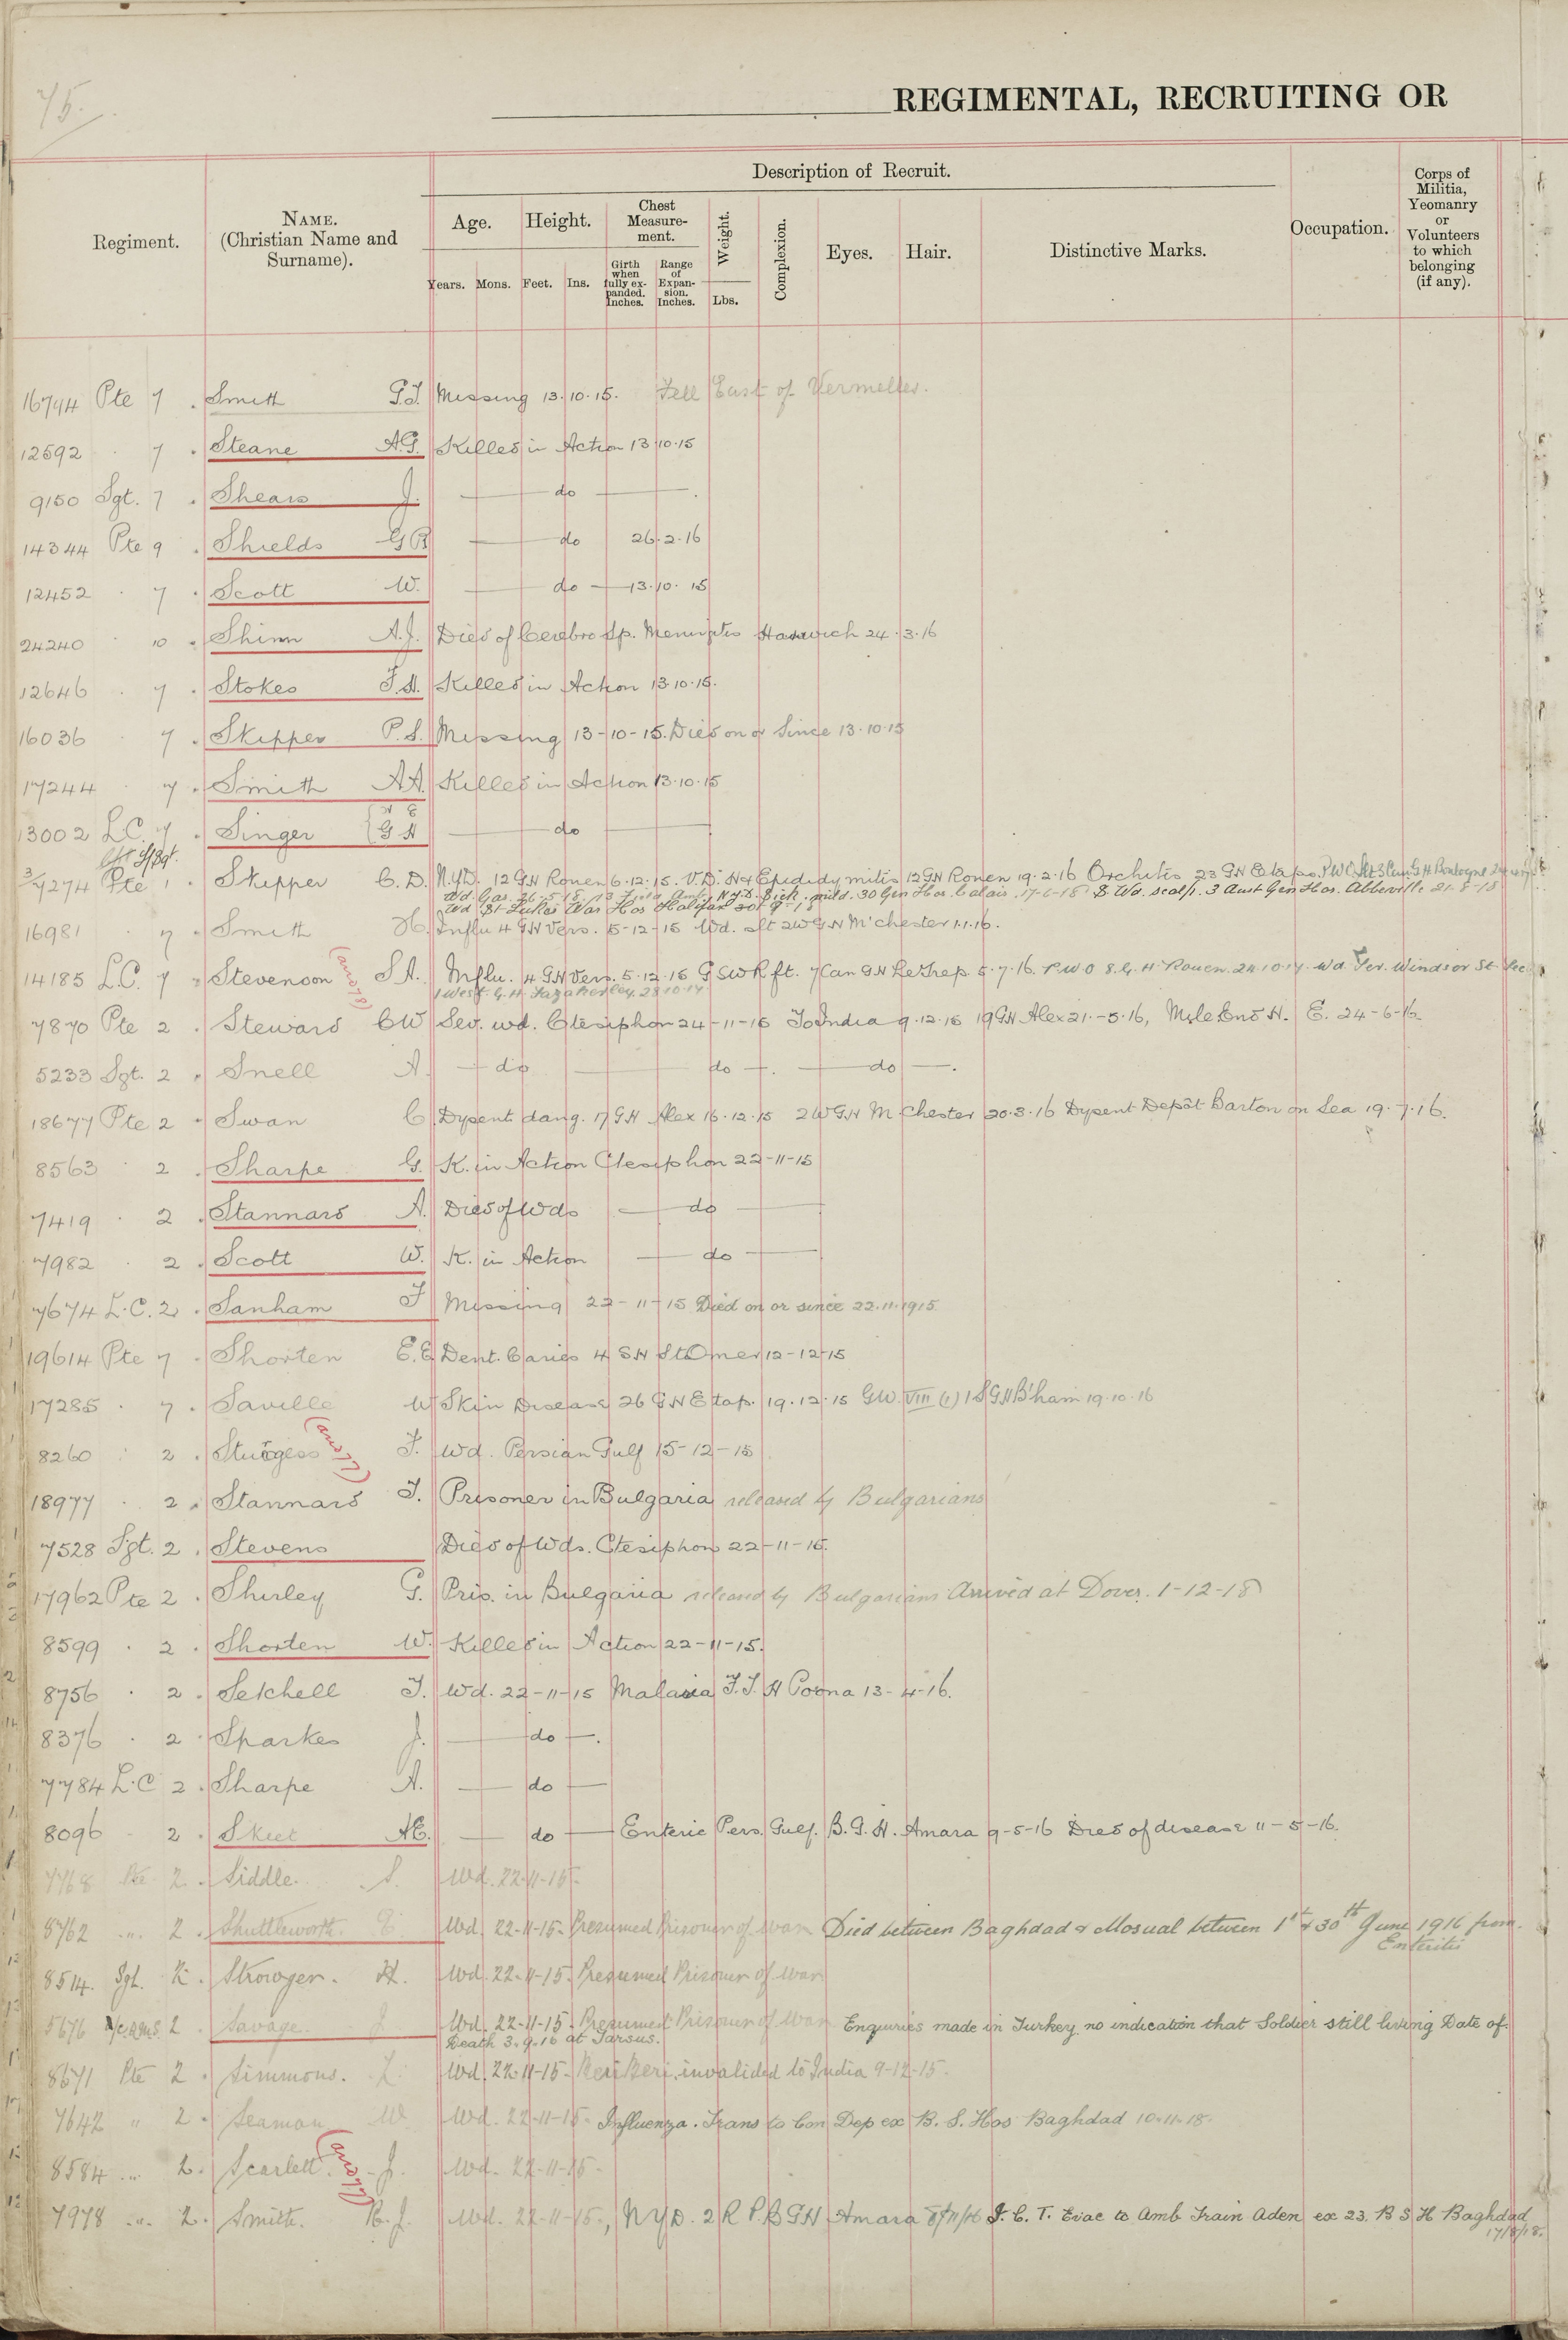 75.
REGIMENTAL, RECRUITING OR
Regiment.
NAME.
(Christian Name and
Surname).
Description of Recruit.
Age.
Height.
Chest
Measure-
ment.
Weight.
Complexion.
Eyes.
Hair.
Distinctive Marks.
Occupation.
Corps of
Militia,
Yeomanry
or
Volunteers
to which
belonging
(if any).
Years.
Mons.
Feet.
Ins.
Girth
when
fully ex-
panded.
Inches.
Range
of
Expan-
sion.
Inches.
Lbs.
16794 Pte 7 . Smith G.J. Missing 13.10.15. Fell East of Vermelles.
12592 . 7 . Steane A.G. Killed in Action 13.10.15
9150 Sgt. 7 . Shears J. — do — .
14344 Pte 9 . Shields G R — do 26.2.16
12452 . 7 . Scott W. — do — 13.10.15
24240 . 10 . Shinn A.J. Died of Cerebro Sp. Meningitis Harwich 24.3.16
12646 . 7 . Stokes F.H. Killed in Action 13.10.15.
16036 . 7 . Skipper P.S. Missing 13-10-15. Died on or Since 13.10.15
17244 . 7 . Smith A A. Killed in Action 13.10.15
13002 L.C. 7 . Singer G H — do —
3/7274 Pte 1 . Skipper C.D. N.Y.D. 12 G.H Rouen 6.12.15. V.D. Epididymitis 12 GH Rouen 19.2.16 Orchitis 23 G.H Etaps.
Wd. Gas. N.Y.D. Sick. mild. 30 Gen Hos. Calais. 17-6-18 S. Wd. scalp. 3 Aust Gen Hos. Abbeville 21-8-18
Wd St Lukes War Hos Halifax
16981 . 7 . Smith H. Influ 4 GH Vers. 5-12-15 Wd. slt 2WGH M'chester 1.1.16.
14185 L.C. 7 . Stevenson S A. Influ. 4 G.H Vers. 5.12.15 GSW R ft. 7 Can G.H Le Trep. 5.7.16. P.W.O 8.G.H. Rouen. 24.10.17. Wd Fev. Windsor St
1 West. G.H. Fazakerley. 28.10.17
7870 Pte 2 . Steward C W Sev. wd. Ctesiphon 24-11-15 To India 9.12.15 19GH Alex 21.-5.16, Mile End H. E. 24-6-16.
5233 Sgt. 2 . Snell A. — do — do — . — do — .
18677 Pte 2 . Swan C Dysent dang. 17 GH Alex 16.12.15 2WGH M.Chester 20.3.16 Dysent Depôt Barton on Sea 19.7.16.
8563 . 2 . Sharpe G. K. in Action Ctesiphon 22-11-15
7419 . 2 . Stannard A. Died of Wds — do —
7982 . 2 . Scott W. K. in Action — do —
7674 L.C. 2 . Sanham F Missing 22-11-15 Died on or since 22.11.1915
19614 Pte 7 . Shorten E.E Dent. Caries 4 SH St Omer 12-12-15
17285 . 7 . Saville W Skin Disease 26 GH Etap. 19.12.15 GW. VIII (1) 1 SGH B'ham 19.10.16
8260 . 2 . Sturgess F. Wd. Persian Gulf 15-12-15
18977 . 2 . Stannard J. Prisoner in Bulgaria released by Bulgarians
7528 Sgt. 2 . Stevens Died of Wds. Ctesiphon 22-11-15.
17962 Pte 2 . Shirley G. Pris. in Bulgaria released by Bulgarians Arrived at Dover. 1-12-18
8599 . 2 . Shorten W. Killed in Action 22-11-15.
8756 . 2 . Setchell J. Wd. 22-11-15 Malaria F.F.H Poona 13-4-16.
8376 . 2 . Sparkes J. — do — .
7784 L.C 2 . Sharpe A. — do —
8096 . 2 . Skeet A E. — do — Enteric Pers. Gulf. B.G.H. Amara 9-5-16 Died of disease 11-5-16.
7768 Pte 2 . Siddle. S. Wd. 22-11-15.
8762 .. 2 . Shuttleworth. E. Wd. 22-11-15. Presumed Prisoner of war Died between Baghdad & Mosual between 1st & 30th June 1916 from
Enteritis
8514. Sgt. 2 . Strowger. H. Wd. 22-11-15. Presumed Prisoner of War
5676 2 . Savage. J Wd. 22-11-15. Presumed Prisoner of War Enquiries made in Turkey no indication that Soldier still living Date of
Death 3.9.16 at Tarsus.
8671 Pte 2 . Simmons. Z. Wd. 22-11-15. Beri Beri. invalided to India 9-12-15.
7642 " 2 . Seaman W Wd. 22-11-15. Influenza. Trans to Con Dep ex B.S. Hos Baghdad 10.11.18.
8584 .. 2 . Scarlett. J. Wd. 22-11-15.
7978 .. 2 . Smith. R.J. Wd. 22-11-15., N Y D. 2 R P.B GH Amara J.C.T. Evac to Amb Train Aden ex 23. B S H Baghdad
17/8/18.